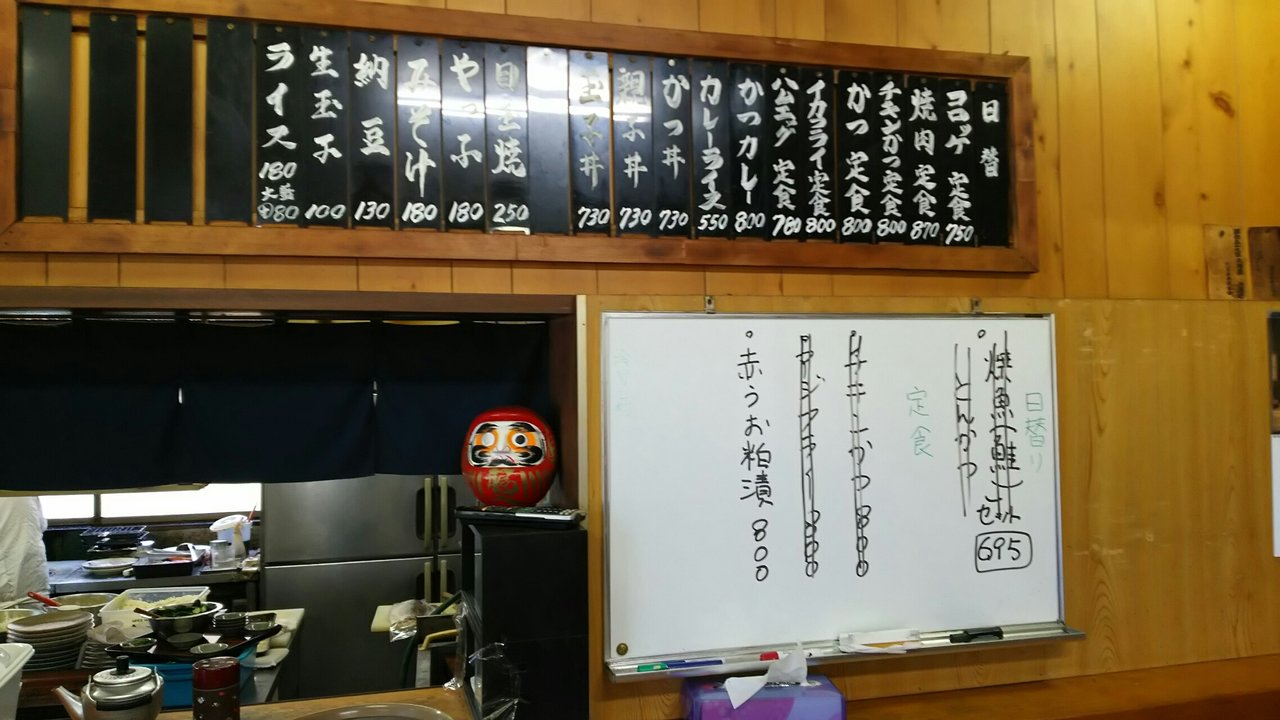 日替
コロッケ 定食 750
焼肉 定食 870
チキンかつ定食 800
かつ 定食 800
イカフライ定食 800
ハムエッグ 定食 780
かつカレー 800
カレーライス 550
かつ丼 730
親子丼 730
玉子丼 730
目玉焼 250
やっこ 180
みそ汁 180
納豆 130
生玉子 100
ライス 180
日替り
焼魚(鮭)
とんかつ
セット
695
定食
カキフライ 800
赤うお粕漬 800